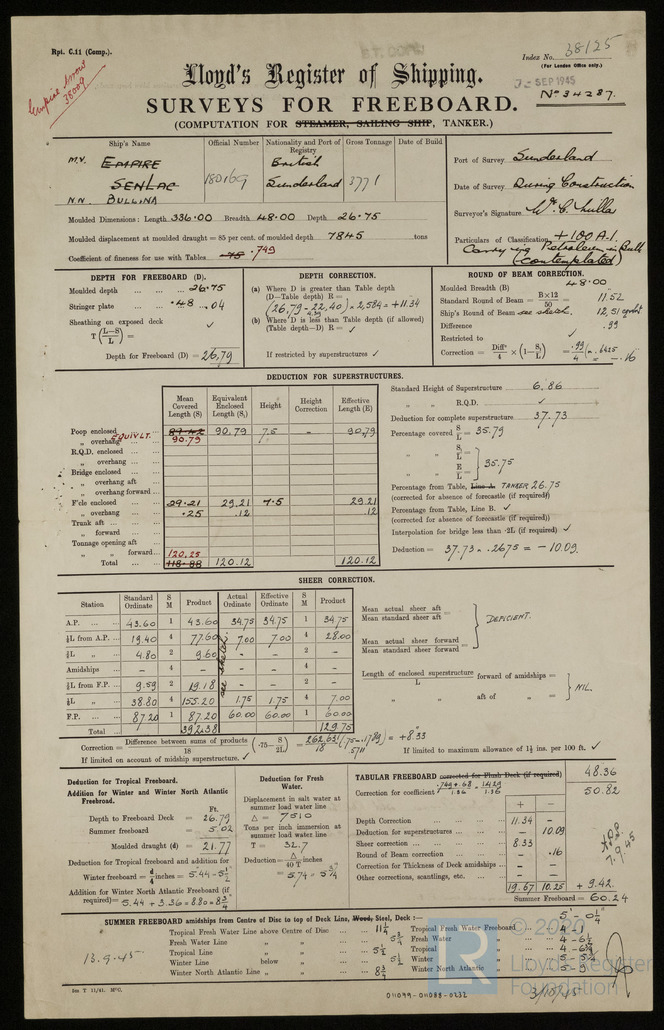 Rpt. C.11 (Comp.).
Index No. 38125
(For London Office only.)
Empire Arrow
38009
Lloyd's Register of Shipping.
SEP 1945
SURVEYS FOR FREEBOARD.
No 34287.
(COMPUTATION FOR STEAMER, SAILING SHIP, TANKER.)
Ship's Name Official Number Nationality and Port of Registry Gross Tonnage Date of Build
M.V. EMPIRE SENLAC
N.N. BULLINA
180169 British Sunderland 3771
Port of Survey Sunderland
Date of Survey During Construction
Surveyor's Signature
Particulars of Classification +100 A.1. Carrying Petroleum in Bulk (contemplated)
Moulded Dimensions: Length 336.00 Breadth 48.00 Depth 26.75
Moulded displacement at moulded draught = 85 per cent. of moulded depth 7845 tons
Coefficient of fineness for use with Tables .75 .749
DEPTH FOR FREEBOARD (D).
Moulded depth ... 26.75
Stringer plate ... .48 .04
Sheathing on exposed deck ✓
T (L–S/L) =
Depth for Freeboard (D) = 26.79
DEPTH CORRECTION.
(a) Where D is greater than Table depth
(D—Table depth) R =
(26.79 - 22.40) × 2.584 = +11.34
4.39
(b) Where D is less than Table depth (if allowed)
(Table depth—D) R = ✓
If restricted by superstructures ✓
ROUND OF BEAM CORRECTION.
Moulded Breadth (B) 48.00
Standard Round of Beam = B×12/50 = 11.52
Ship's Round of Beam see sketch. = 12.51 equivt
Difference .99
Restricted to ✓
Correction = Diffce/4 × (1–S₁/L) = .99/4 × .6425 = -.16
DEDUCTION FOR SUPERSTRUCTURES.
Mean Covered Length (S) Equivalent Enclosed Length (S₁) Height Height Correction Effective Length (E)
Poop enclosed 89.42 90.79 7.5 – 90.79
„ overhang EQUIVLT. 90.79
R.Q.D. enclosed
„ overhang
Bridge enclosed
„ overhang aft
„ overhang forward
F'cle enclosed 29.21 29.21 7.5 29.21
„ overhang .25 .12 .12
Trunk aft
„ forward
Tonnage opening aft
„ „ forward 120.25
Total 118.88 120.12 120.12
Standard Height of Superstructure 6.86
„ „ R.Q.D. ✓
Deduction for complete superstructure 37.73
Percentage covered S/L = 35.79
„ „ S₁/L =
E/L = } 35.75
Percentage from Table, Line A. TANKER 26.75
(corrected for absence of forecastle (if required))
Percentage from Table, Line B. ✓
(corrected for absence of forecastle (if required))
Interpolation for bridge less than ·2L (if required) ✓
Deduction = 37.73 × .2675 = – 10.09
SHEER CORRECTION.
Station Standard Ordinate S M Product Actual Ordinate Effective Ordinate S M Product
A.P. 43.60 1 43.60 34.75 34.75 1 34.75
⅙L from A.P. 19.40 4 77.60 7.00 7.00 4 28.00
⅓L „ 4.80 2 9.60 – – 2 –
Amidships – 4 – – 4 –
⅓L from F.P. 9.59 2 19.18 – – 2 –
⅙L „ 38.80 4 155.20 1.75 1.75 4 7.00
F.P. 87.20 1 87.20 60.00 60.00 1 60.00
Total 392.38 129.75
see sketch
Mean actual sheer aft
Mean standard sheer aft =
Mean actual sheer forward
Mean standard sheer forward =
DEFICIENT.
Length of enclosed superstructure/L forward of amidships =
„ aft of „ =
NIL.
Correction = Difference between sums of products/18 (·75–S/2L) = 262.631/18 (.75–.1789) = +8.33
.5711
If limited on account of midship superstructure. ✓
If limited to maximum allowance of 1½ ins. per 100 ft. ✓
Deduction for Tropical Freeboard.
Addition for Winter and Winter North Atlantic Freeboard.
Ft.
Depth to Freeboard Deck = 26.79
Summer freeboard = 5.02
Moulded draught (d) = 21.77
Deduction for Tropical freeboard and addition for
Winter freeboard = d/4 inches = 5.44 - 5½
Addition for Winter North Atlantic Freeboard (if
required) = 5.44 + 3.36 = 8.80 = 8¾
Deduction for Fresh Water.
Displacement in salt water at
summer load water line
△ = 7510
Tons per inch immersion at
summer load water line
T = 32.7
Deduction = △/40 T inches
= 5.74 = 5¾
TABULAR FREEBOARD corrected for Flush Deck (if required) 48.36
Correction for coefficient .749+.68/1.36 = 1.429/1.36 50.82
+ –
Depth Correction 11.34 –
Deduction for superstructures – 10.09
Sheer correction 8.33 –
Round of Beam correction – .16
Correction for Thickness of Deck amidships – –
Other corrections, scantlings, etc. – –
19.67 10.25 + 9.42
Summer Freeboard = 60.24
7.9.45
SUMMER FREEBOARD amidships from Centre of Disc to top of Deck Line, Wood, Steel, Deck :— 5 - 0¼
Tropical Fresh Water Line above Centre of Disc 11¼
Fresh Water Line „ „ 5¾
Tropical Line „ „ 5½
Winter Line below „ 5½
Winter North Atlantic Line „ „ 8¾
Tropical Fresh Water Freeboard 4 - 1
Fresh Water „ 4 - 6½
Tropical „ 4 - 6¾
Winter „ 5 - 5¾
Winter North Atlantic „ 5 - 9
13.9.45
3/10/45
011099-011088-0232
© 2020
LR
Lloyd's Register
Foundation